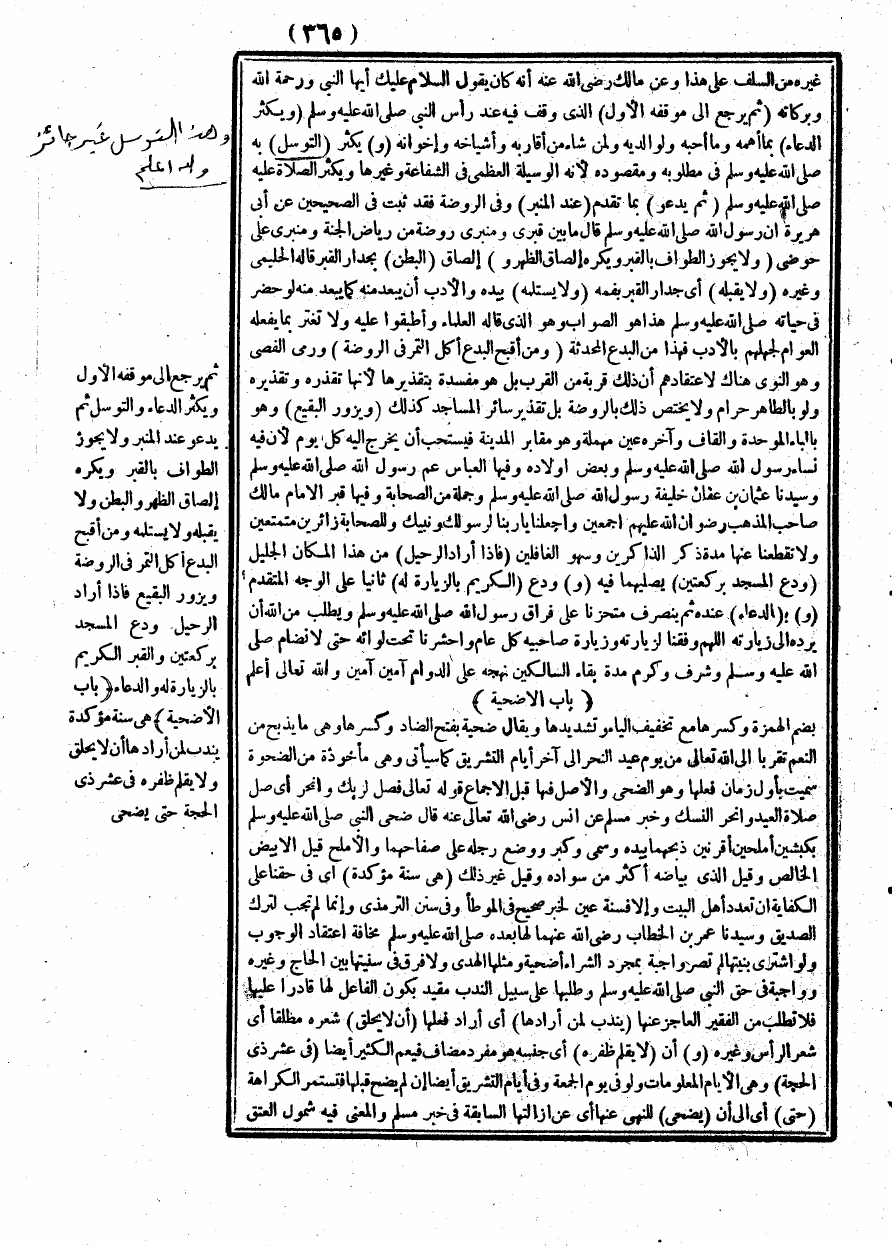 (٣٦٥)
غيره من السلف على هذا وعن مالك رضى الله عنه أنه كان يقول السلام عليك أيها النبى ورحمة الله
وبركاته (ثم يرجع الى موقفه الأول) الذى وقف فيه عند رأس النبى صلى الله عليه وسلم (ويكثر
الدعاء) بما أهمه وما أحبه ولوالديه ولمن شاء من أقاربه وأشياخه وإخوانه (و) يكثر (التوسل) به
صلى الله عليه وسلم فى مطلوبه ومقصوده لأنه الوسيلة العظمى فى الشفاعة وغيرها ويكثر الصلاة عليه
صلى الله عليه وسلم (ثم يدعو) بما تقدم (عند المنبر) وفى الروضة فقد ثبت فى الصحيحين عن أبى
هريرة ان رسول الله صلى الله عليه وسلم قال ما بين قبرى ومنبرى روضة من رياض الجنة ومنبرى على
حوضى (ولا يجوز الطواف بالقبر ويكره إلصاق الظهر و) إلصاق (البطن) بجدار القبر قاله الحليمى
وغيره (ولا يقبله) أى جدار القبر بفمه (ولا يستلمه) بيده والأدب أن يبعد منه كما يبعد منه لو حضر
فى حياته صلى الله عليه وسلم هذا هو الصواب وهو الذى قاله العلماء وأطبقوا عليه ولا تغتر بما يفعله
العوام لجهلهم بالأدب فهذا من البدع المحدثة (ومن أقبح البدع أكل التمر فى الروضة) ورمى الفصى
وهو النوى هناك لاعتقادهم أن ذلك قربة من القرب بل هو مفسدة بتقذيرها لأنها تقذره وتقذيره
ولو بالطاهر حرام ولا يختص ذلك بالروضة بل تقذير سائر المساجد كذلك (ويزور البقيع) وهو
بالباء الموحدة والقاف وآخره عين مهملة وهو مقابر المدينة فيستحب أن يخرج اليه كل يوم لأن فيه
نساء رسول الله صلى الله عليه وسلم وبعض اولاده وفيها العباس عم رسول الله صلى الله عليه وسلم
وسيدنا عثمان بن عفان خليفة رسول الله صلى الله عليه وسلم وجملة من الصحابة وفيها قبر الامام مالك
صاحب المذهب رضوان الله عليهم اجمعين واجعلنا يا ربنا لرسولك ونبيك وللصحابة زائرين متمتعين
ولا تقطعنا عنها مدة ذكر الذاكرين وسهو الغافلين (فاذا أراد الرحيل) من هذا المكان الجليل
(ودع المسجد بركعتين) يصليهما فيه (و) ودع (الكريم بالزيارة له) ثانيا على الوجه المتقدم
(و) ب(الدعاء) عنده ثم ينصرف متحزنا على فراق رسول الله صلى الله عليه وسلم ويطلب من الله أن
يرده الى زيارته اللهم وفقنا لزيارته وزيارة صاحبيه كل عام واحشرنا تحت لوائه حتى لا نضام صلى
الله عليه وسلم وشرف وكرم مدة بقاء السالكين نهجه على الدوام آمين آمين والله تعالى أعلم
(باب الاضحية)
بضم الهمزة وكسرها مع تخفيف الياء وتشديدها ويقال ضحية بفتح الضاد وكسرها وهى ما يذبح من
النعم تقربا الى الله تعالى من يوم عيد النحر الى آخر أيام التشريق كما سيأتى وهى مأخوذة من الضحوة
سميت بأول زمان فعلها وهو الضحى والأصل فيها قبل الاجماع قوله تعالى فصل لربك وانحر أى صل
صلاة العيد وانحر النسك وخبر مسلم عن انس رضى الله تعالى عنه قال ضحى النبى صلى الله عليه وسلم
بكبشين أملحين أقرنين ذبحهما بيده وسمى وكبر ووضع رجله على صفاحهما والأملح قيل الابيض
الخالص وقيل الذى بياضه أكثر من سواده وقيل غير ذلك (هى سنة مؤكدة) اى فى حقنا على
الكفاية ان تعدد أهل البيت وإلا فسنة عين لخبر صحيح فى الموطأ وفى سنن الترمذى وإنما لم تجب لترك
الصديق وسيدنا عمر بن الخطاب رضى الله عنهما لها بعده صلى الله عليه وسلم مخافة اعتقاد الوجوب
ولو اشترى بنيتها لم تصر واجبة بمجرد الشراء أضحية ومثلها الهدى ولا فرق فى سنيتها بين الحاج وغيره
وواجبة فى حق النبى صلى الله عليه وسلم وطلبها على سبيل الندب مقيد بكون الفاعل لها قادرا عليها
فلا تطلب من الفقير العاجز عنها (يندب لمن أرادها) أى أراد فعلها (أن لا يحلق) شعره مطلقا أى
شعر الرأس وغيره (و) أن (لا يقلم ظفره) أى جنسه هو مفرد مضاف فيعم الكثير أيضا (فى عشر ذى
الحجة) وهى الأيام المعلومات ولو فى يوم الجمعة وفى أيام التشريق أيضا إن لم يضح قبلها فتستمر الكراهة
(حتى) أى الى أن (يضحى) للنهى عنها أى عن ازالتها السابقة فى خبر مسلم والمعنى فيه شمول العتق
وهذا التوسل غير جائز
والله اعلم
ثم يرجع الى موقفه الأول
ويكثر الدعاء والتوسل ثم
يدعو عند المنبر ولا يجوز
الطواف بالقبر ويكره
إلصاق الظهر والبطن ولا
يقبله ولا يستلمه ومن أقبح
البدع أكل التمر فى الروضة
ويزور البقيع فاذا أراد
الرحيل ودع المسجد
بركعتين والقبر الكريم
بالزيارة له والدعاء (باب
الأضحية) هى سنة مؤكدة
يندب لمن أرادها أن لا يحلق
ولا يقلم ظفره فى عشر ذى
الحجة حتى يضحى